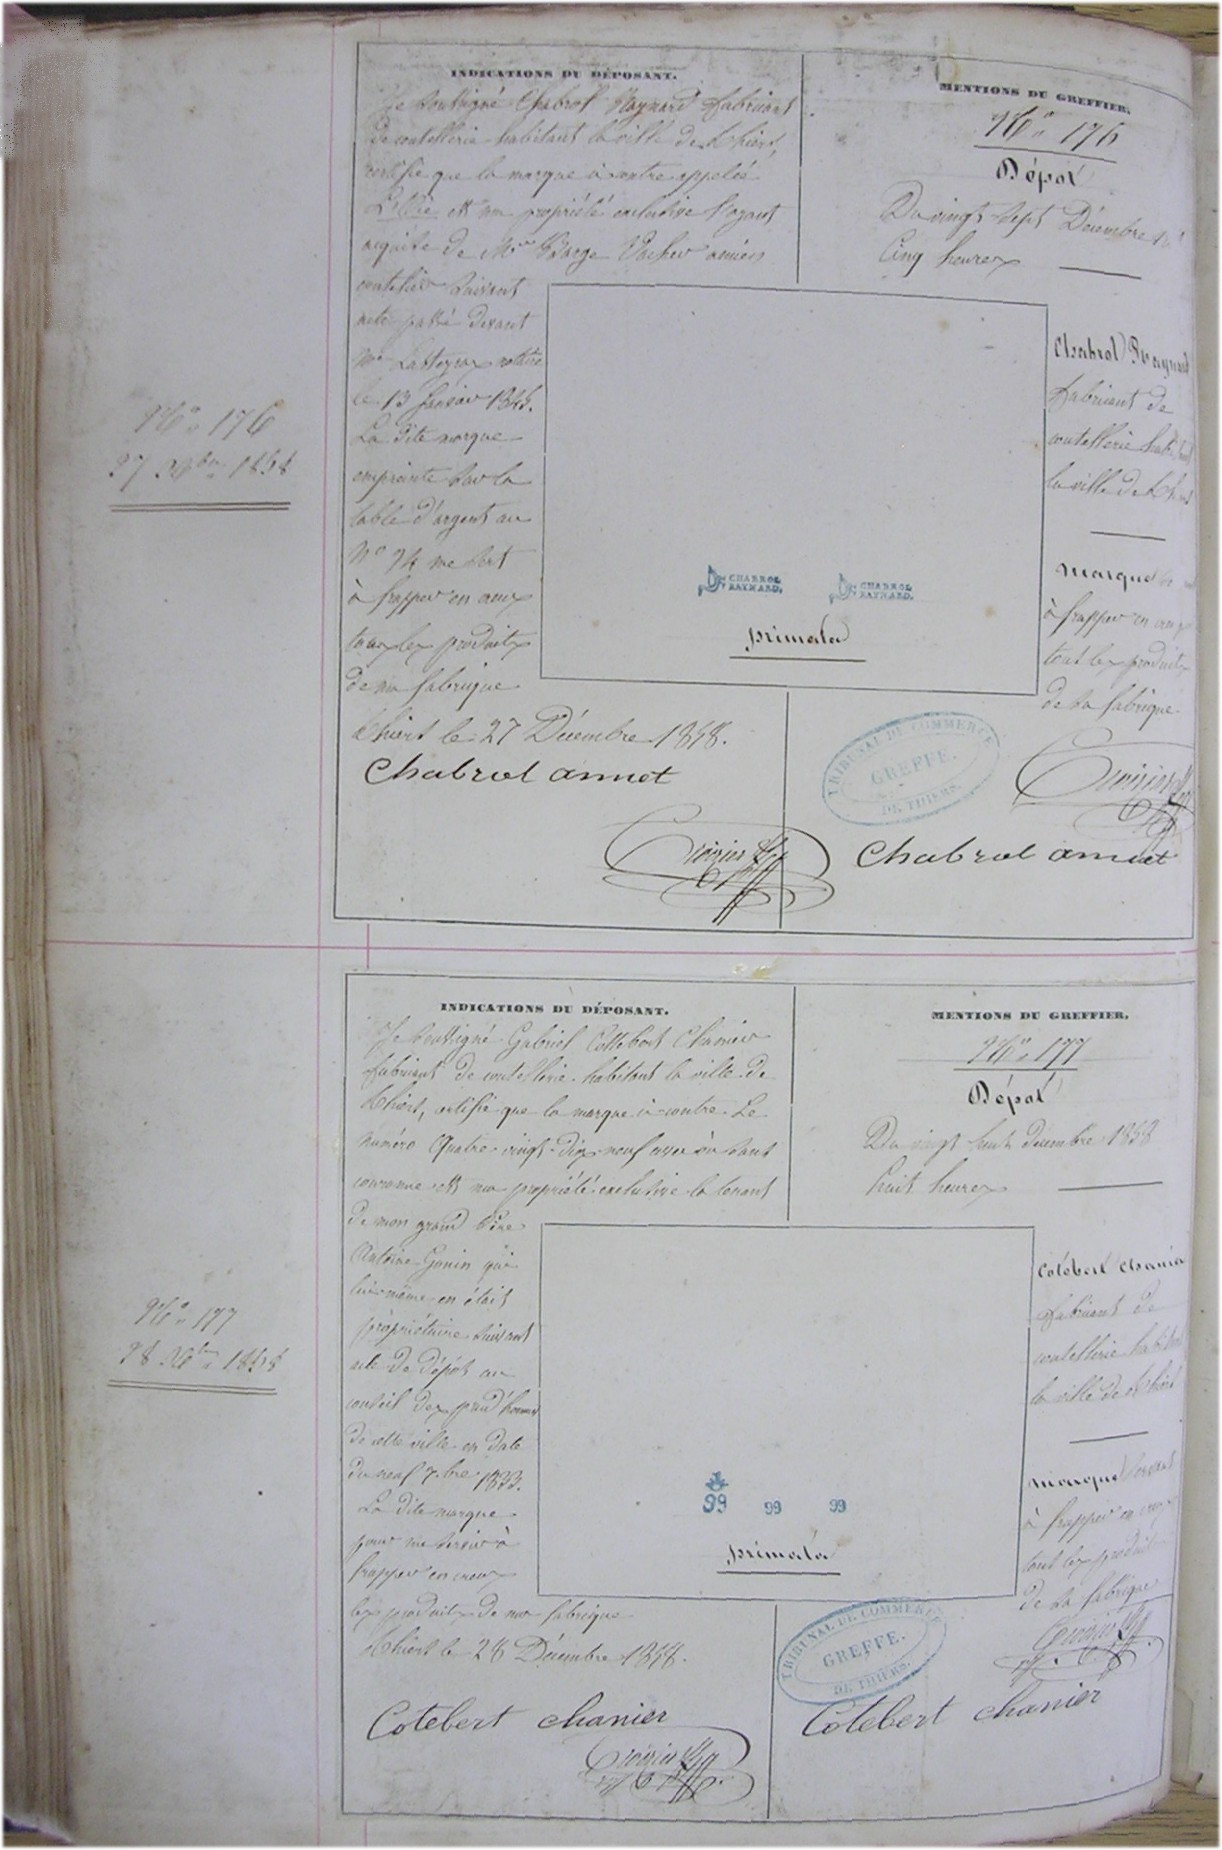 INDICATIONS DU DÉPOSANT.
Je soussigné Chabrol Raynard fabricant
de coutellerie habitant la ville de Thiers,
certifie que la marque ci contre appelée
est ma propriété exclusive l'ayant
acquise de Mr Barge Vacher ancien
coutelier suivant
acte passé devant
Me notaire
le 13 Janvier
La dite marque
empreinte sur la
table d'argent au
No 74 me sert
à frapper en creux
tous les produits
de ma fabrique
Thiers le 27 Décembre 1858.
Chabrol annet
MENTIONS DU GREFFIER.
No. 176
Dépôt
Du vingt-sept Décembre
Cinq heures
Chabrol Raynard
fabricant de
coutellerie
la ville de Thiers
marque
à frapper en creux
tout les produits
de sa fabrique
No. 176
27 Xbre 1858
CHABROL
RAYNARD.
CHABROL
RAYNARD.
primata
TRIBUNAL DE COMMERCE
GREFFE.
DE THIERS.
Chabrol annet
INDICATIONS DU DÉPOSANT.
Je soussigné Gabriel Cottebert Chanier
fabricant de coutellerie habitant la ville de
Thiers, certifie que la marque ci-contre Le
Numéro Quatre-vingt-dix-neuf avec ou sans
couronne est ma propriété exclusive la tenant
de mon grand Père
Antoine Gonin qui
lui-même en était
propriétaire suivant
acte de dépôt au
conseil des prud'hommes
de cette ville en date
du neuf 7.bre 1833.
La dite marque
pour me servir à
frapper en creux
les produits de ma fabrique
Thiers le 28 Décembre 1858.
Cotebert chanier
MENTIONS DU GREFFIER.
No. 177
Dépôt
Du vingt huit décembre 1858
huit heures
Cotebert Chanier
fabricant de
coutellerie
la ville de Thiers
marque servant
à frapper en creux
tout les produits
de sa fabrique
No. 177
28 Xbre 1858
99 99 99
primata
TRIBUNAL DE COMMERCE
GREFFE.
DE THIERS.
Cotebert chanier